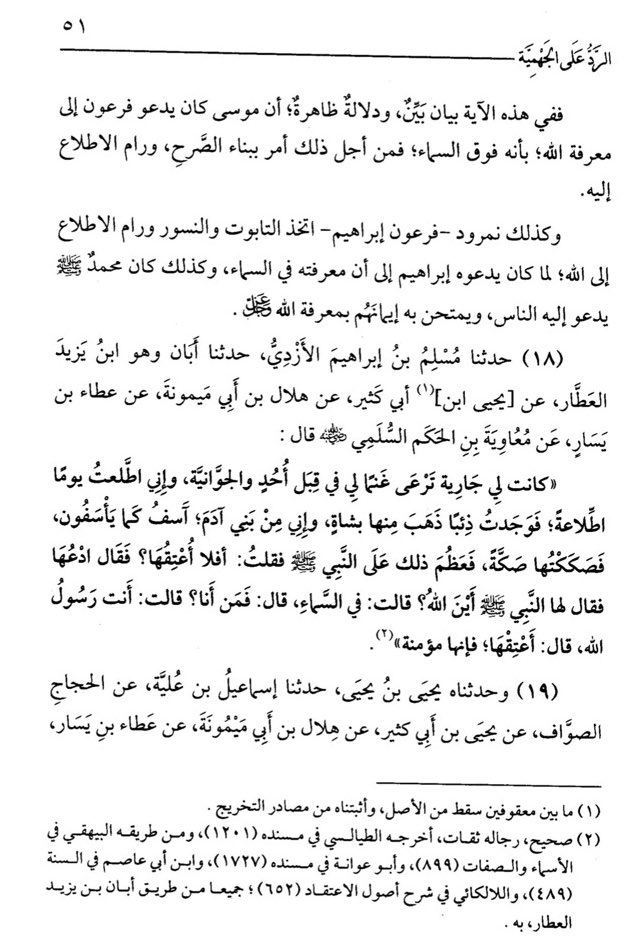 ٥١
الرَّدُّ عَلَى الجَهْمِيَّة
ففي هذه الآية بيان بَيِّنٌ، ودلالةٌ ظاهرةٌ؛ أن موسى كان يدعو فرعون إلى
معرفة الله؛ بأنه فوق السماء؛ فمن أجل ذلك أمر ببناء الصَّرح، ورام الاطلاع
إليه.
وكذلك نمرود -فرعون إبراهيم- اتخذ التابوت والنسور ورام الاطلاع
إلى الله؛ لما كان يدعوه إبراهيم إلى أن معرفته في السماء، وكذلك كان محمدٌ ﷺ
يدعو إليه الناس، ويمتحن به إيمانَهُم بمعرفة الله عَزَّ وَجَلَّ.
(١٨) حدثنا مُسْلِمُ بنُ إبراهيمَ الأَزْدِيُّ، حدثنا أَبَان وهو ابنُ يَزِيدَ
العَطَّار، عن [يحيى ابن](١) أبي كَثير، عن هلال بن أَبي مَيمونةَ، عن عطاء بن
يَسَارٍ، عَن مُعُاوِيَةَ بنِ الحَكَم السُّلَمِي رضي الله عنه قال:
«كانت لي جَارية تَرْعَى غَنمًا لي في قِبَل أُحُدٍ والجوَّانيَّة، وإِني اطَّلعتُ يومًا
اطِّلاعةً؛ فوَجَدتُ ذِئبًا ذَهَبَ مِنها بشاةٍ، وإِني مِنْ بَنِي آدَمَ؛ آسفُ كمَا يَأْسَفُون،
فَصَكَكْتُها صَكَّةً، فَعَظُمَ ذلك عَلَى النَّبي ﷺ فقلتُ: أفلا أُعْتِقُهَا؟ فَقَال ادْعُهَا
فقال لها النَّبي ﷺ أَيْنَ اللهُ؟ قالت: في السَّماءِ، قال: فَمَن أَنا؟ قالت: أَنت رَسُولُ
الله، قال: أَعْتِقْهَا؛ فإنها مؤمنة»(٢).
(١٩) وحدثناه يحيَى بنُ يحيَى، حدثنا إسماعيلُ بن عُليَّة، عن الحجاجِ
الصوَّاف، عن يحيَى بن أَبي كثير، عن هِلال بن أَبي مَيْمُونَةَ، عن عَطاء بنِ يَسَار،
(١) ما بين معقوفين سقط من الأصل، وأثبتناه من مصادر التخريج.
(٢) صحيح، رجاله ثقات، أخرجه الطيالسي في مسنده (١٢٠١)، ومن طريقه البيهقي في
الأسماء والصفات (٨٩٩)، وأبو عوانة في مسنده (١٧٢٧)، وابن أبي عاصم في السنة
(٤٨٩)، واللالكائي في شرح أصول الاعتقاد (٦٥٢)؛ جميعا من طريق أبان بن يزيد
العطار، به.